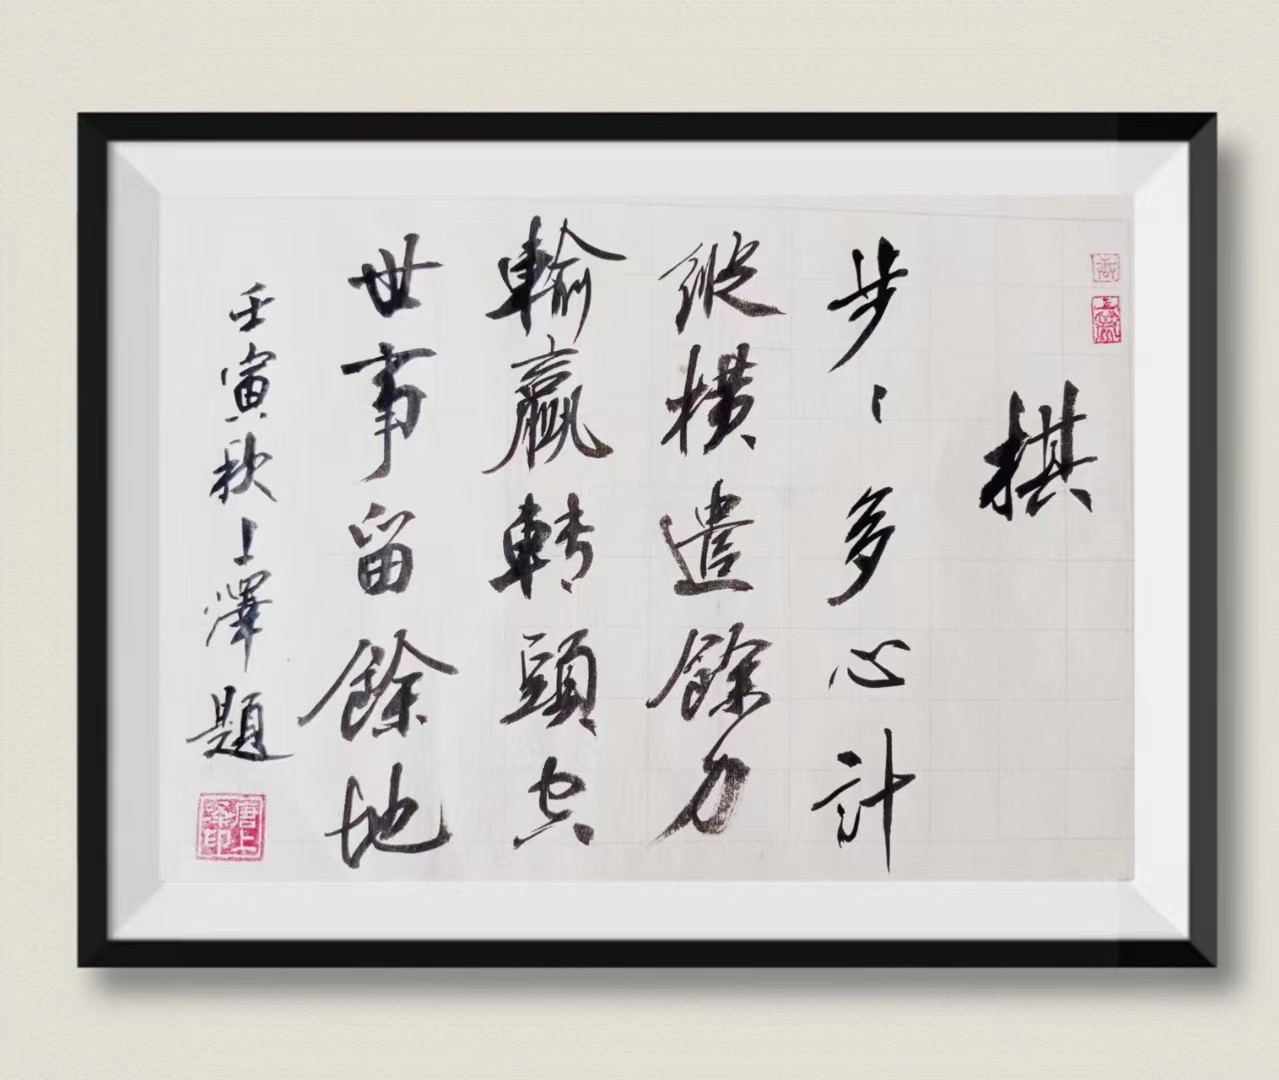 棋
步〻多心計
縱橫遣餘力
輸贏轉頭空
世事留餘地
壬寅秋上澤題
唐上澤印